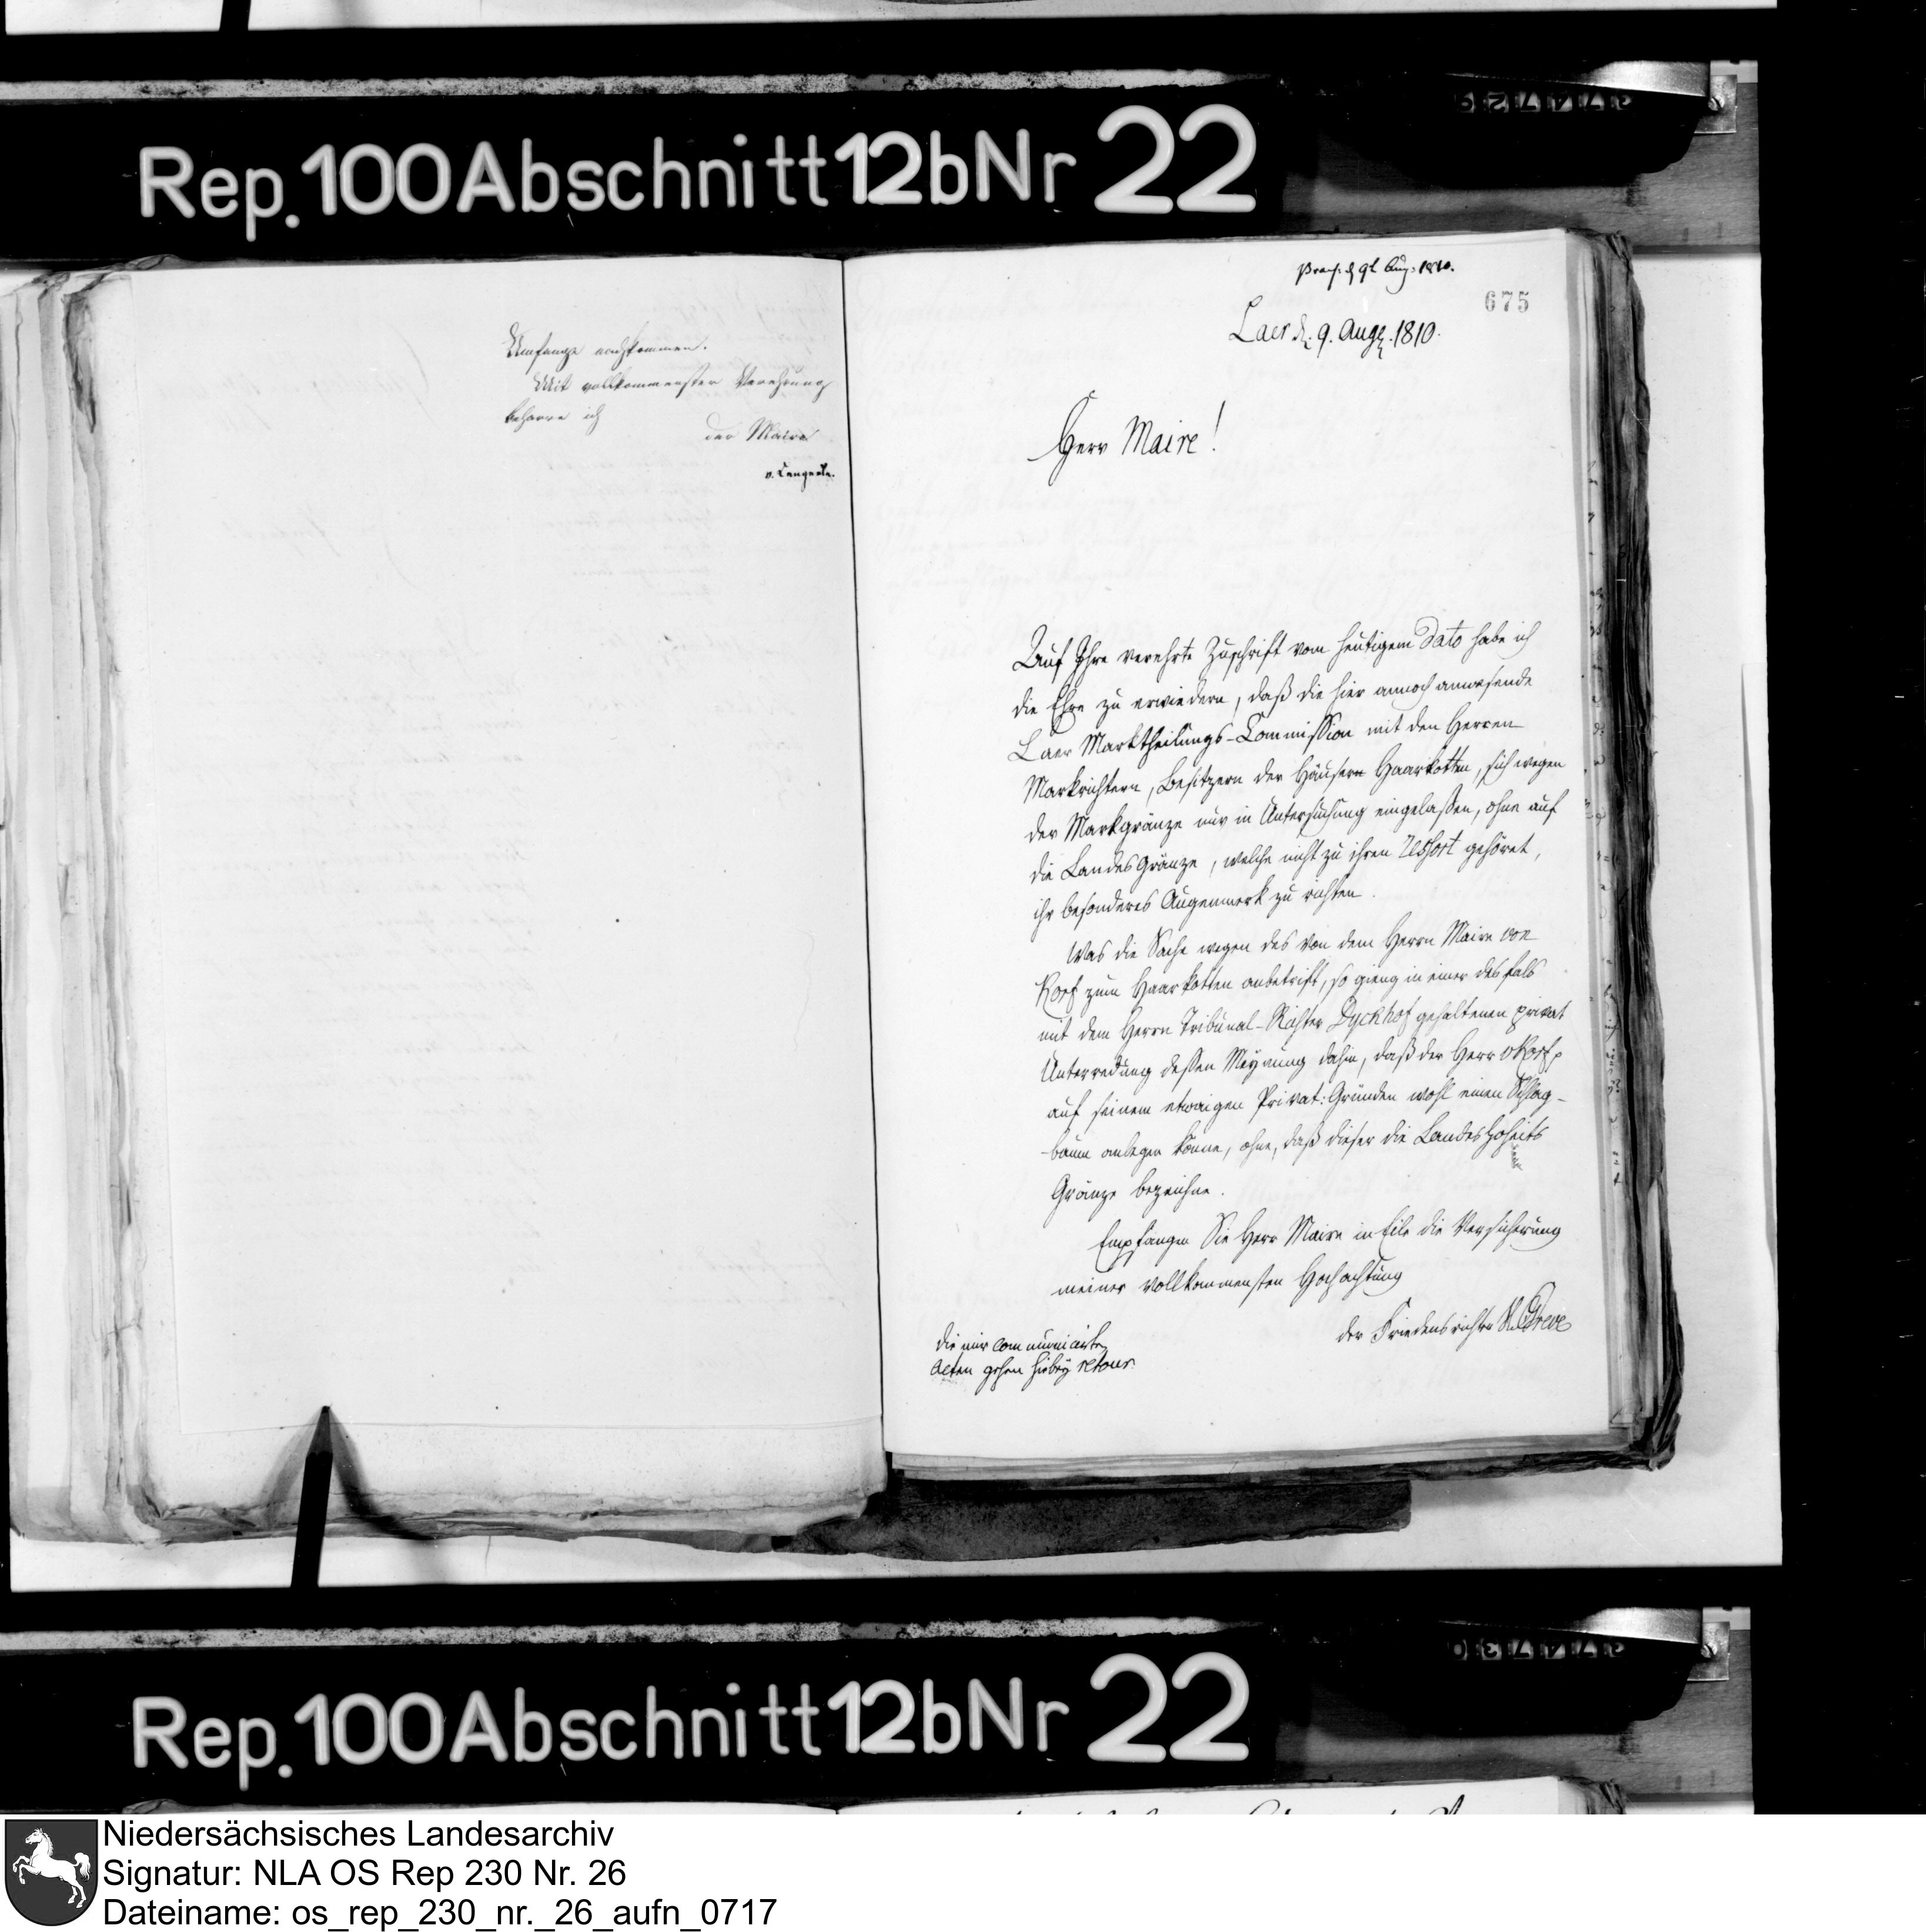 37 47 29
Rep. 100 Abschnitt 12b Nr 22
Umfange nachkommen.
Mit vollkommenster Verehrung
beharre ich
der Maire
v. Lengerke.
praes. d 9t Aug. 1810.
675
Laer d. 9. Aug. 1810.
Herr Maire!
Auf Ihre verehrte Zuschrift vom heutigem Dato habe ich
die Ehre zu erwiedern, daß die hier annoch anwesende
Laer Marktheilungs-Commission mit den Herren
Markrichtern, Besitzern der Häusern Haarkotten, sich wegen
der Markgränze nur in Untersuchung eingelaßen, ohne auf
die Landes Gränze, welche nicht zu ihren Ressort gehöret,
ihr besonderes Augenmerk zu richten.
Was die Sache wegen des von dem Herrn Maire von
Korf zum Haarkotten anbetrift, so gieng in einer desfals
mit dem Herrn Tribunal-Richter Dyckhof gehaltenen privat
Unterredung deßen Meynung dahin, daß der Herr v Korf
auf seinem etwaigen Privat: Gründen wohl einen Schlag-
-baum anlegen könne, ohne, daß dieser die Landes Hoheits
Gränze bezeichne.
Empfangen Sie Herr Maire in Eile die Versicherung
meiner vollkommensten Hochachtung
der Friedensrichter Greve
die mir communicirte
Acten gehen hiebey retour.
37 47 30
Rep. 100 Abschnitt 12b Nr 22
Niedersächsisches Landesarchiv
Signatur: NLA OS Rep 230 Nr. 26
Dateiname: os_rep_230_nr._26_aufn_0717